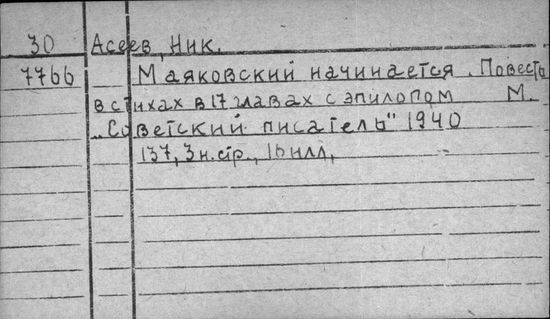 30 Асеев, Ник.
7766 Маяковский начинается. Повесть
в стихах в 17 главах с эпилопом М.
„Советский писатель" 1940
137, 3 н. стр., 16 илл,